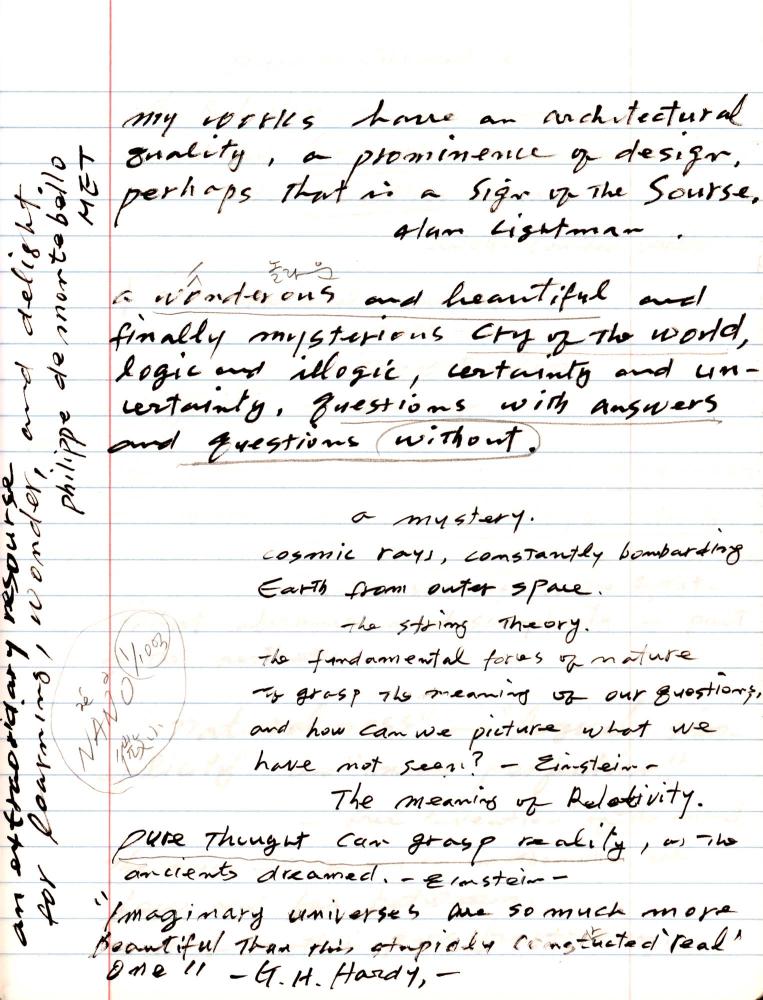 my works have an architectural
quality, a prominence of design,
perhaps that is a sign of the Sourse.
Alan Lightman.
놀라운
a wonderous and beautiful and
finally mysterious cry of the world,
logic and illogic, certainty and un-
certainty, questions with answers
and questions without.
a mystery.
cosmic rays, constantly bombarding
Earth from outer space.
The string Theory.
The fundamental forces of nature
To grasp the meaning of our questions,
and how can we picture what we
have not seen? - Einstein -
The meaning of Relativity.
pure thought can grasp reality, as the
ancients dreamed. - Einstein -
"Imaginary universes are so much more
beautiful than this stupidly constucted 'real'
one" - G. H. Hardy, -
NANO
an extraordiary resourse
for learning, wonder, and delight.
philippe de montebello
MET